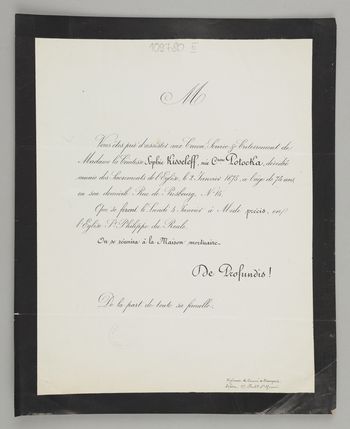 109780 II
M
Vous êtes prié d'assister aux Convoi, Service & Enterrement de
Madame la Comtesse Sophie Kisseleff, née Ctesse Potocka, décédée
munie des Sacrements de l'Eglise, le 2 Janvier 1875, à l'âge de 74 ans
en son domicile Rue de Presbourg, N° 15.
Qui se feront le Lundi 4 Janvier à Midi précis, en
l'Eglise St Philippe du Roule.
On se réunira à la Maison mortuaire.
De Profundis!
De la part de toute sa famille.